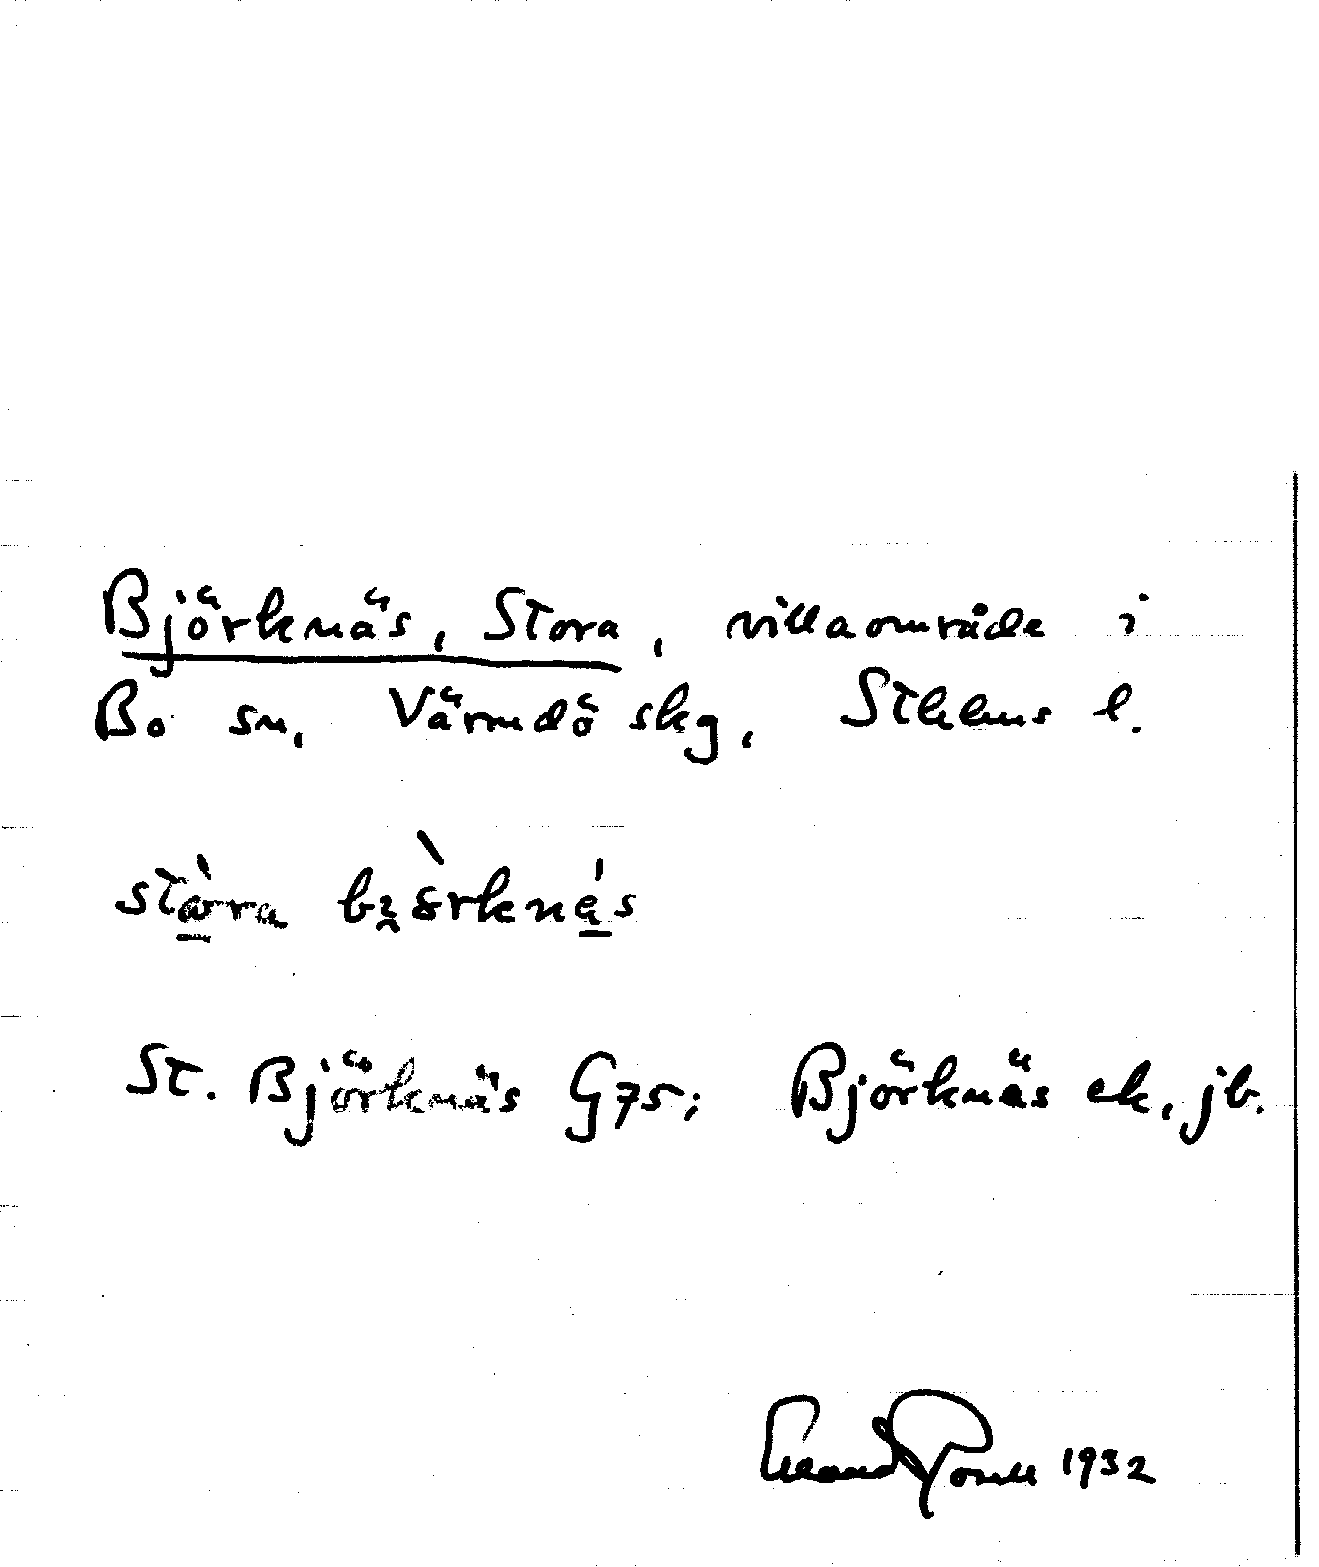 Björknäs, Stora, villaområde i
Bo sn, Värmdö skg, Sthlms l.
stò̲ra bʒ̑òrkná̲s
St. Björknäs G75; Björknäs ek, jb.
1932